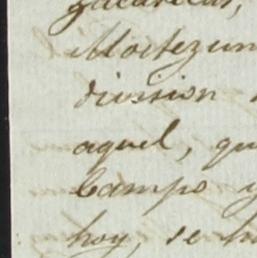 Zacatecas,
Moctezum
division
aquel, qu
Campo y
hoy, se h